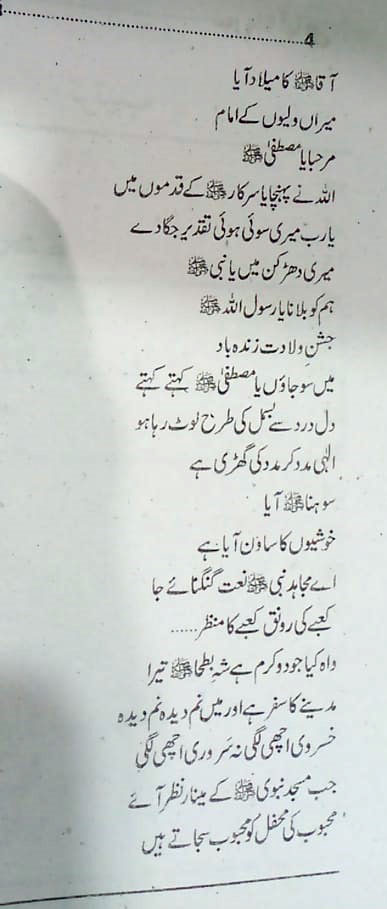 4
آقا ﷺ کا میلاد آیا
میراں ولیوں کے امام
مرحبا یا مصطفیٰ ﷺ
اللہ نے پہنچایا سرکار ﷺ کے قدموں میں
یارب میری سوئی ہوئی تقدیر جگا دے
میری دھڑکن میں یا نبی ﷺ
ہم کو بلانا یا رسول اللہ ﷺ
جشنِ ولادت زندہ باد
میں سو جاؤں یا مصطفیٰ ﷺ کہتے کہتے
دل درد سے بسمل کی طرح لوٹ رہا ہو
الٰہی مدد کر مدد کی گھڑی ہے
سوہنا ﷺ آیا
خوشیوں کا ساون آیا ہے
اے مجاہد نبی ﷺ نعت گنگنائے جا
کعبے کی رونق کعبے کا منظر......
واہ کیا جود و کرم ہے شہ بطحا ﷺ تیرا
مدینے کا سفر ہے اور میں نم دیدہ نم دیدہ
خسروی اچھی لگی نہ سَروری اچھی لگی
جب مسجد نبوی ﷺ کے مینار نظر آئے
محبوب کی محفل کو محبوب سجاتے ہیں